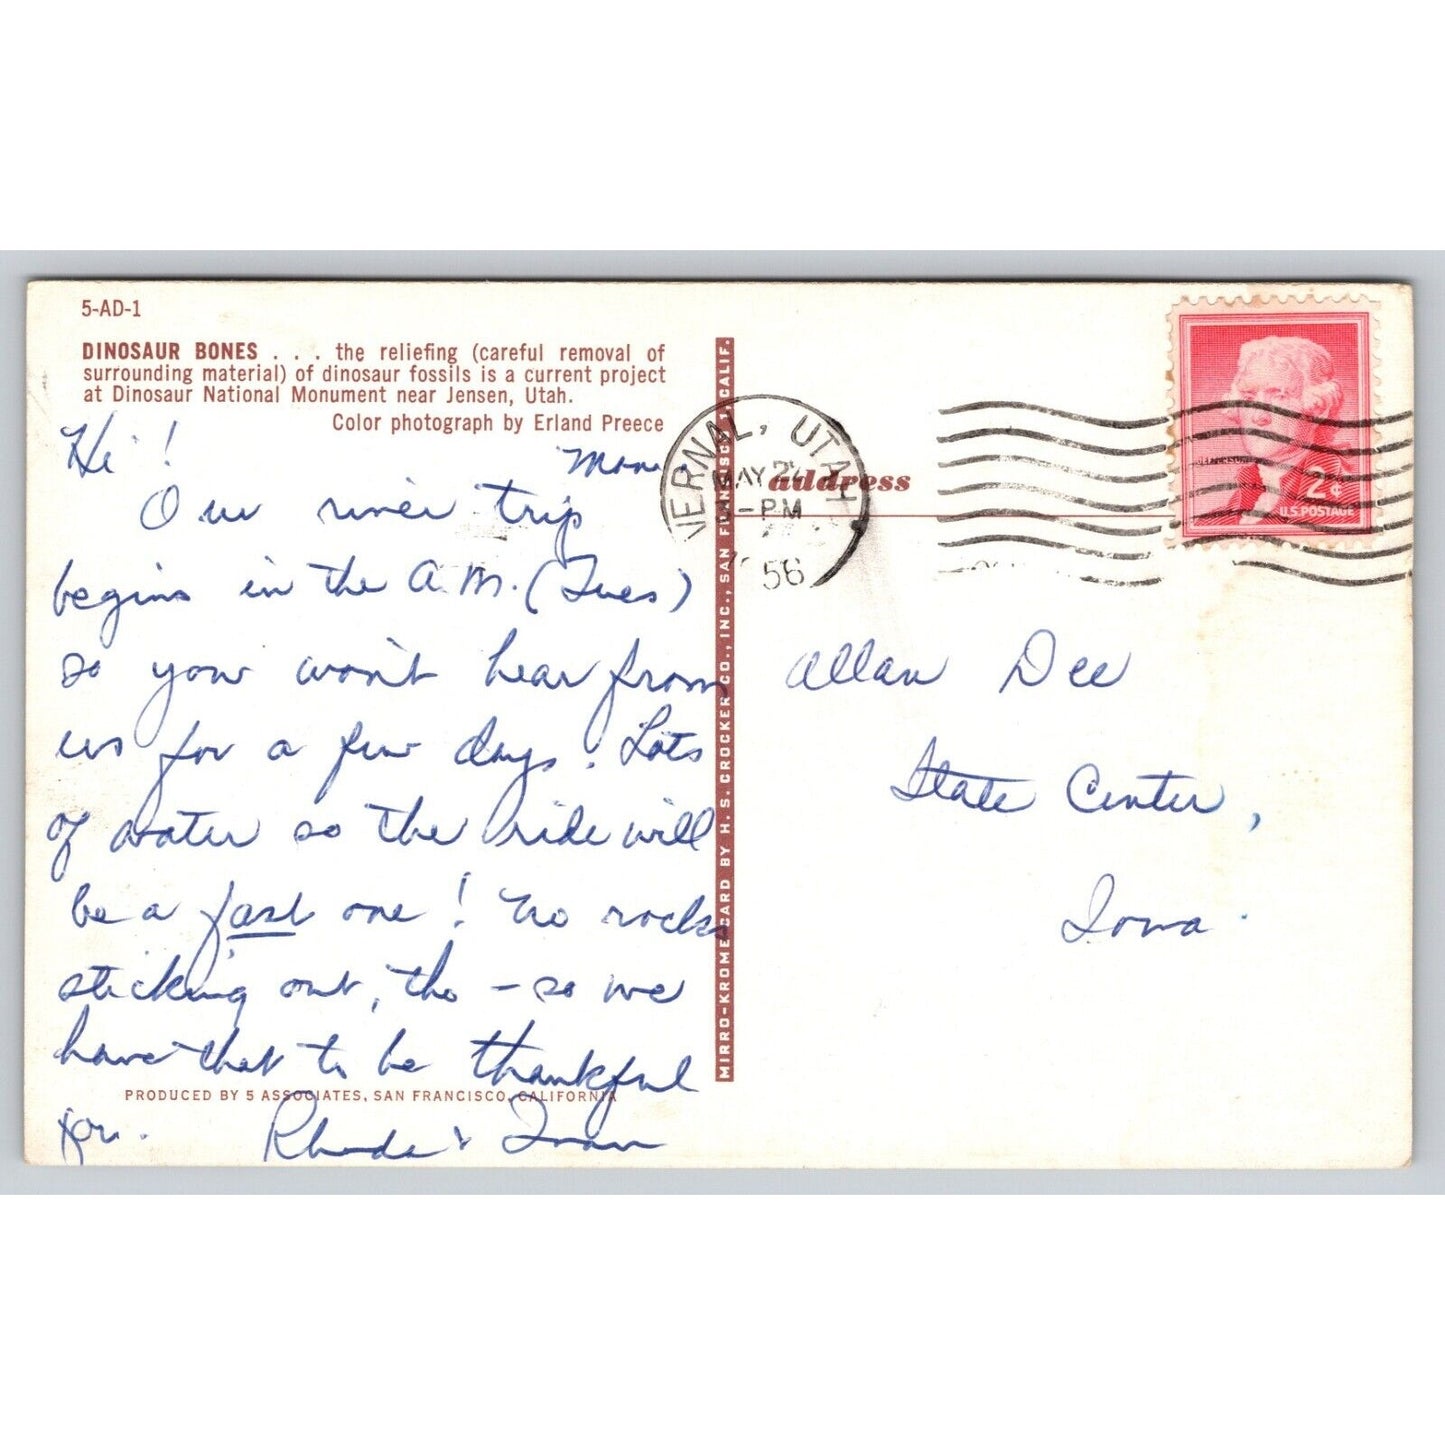 5-AD-1
DINOSAUR BONES . . . the reliefing (careful removal of
surrounding material) of dinosaur fossils is a current project
at Dinosaur National Monument near Jensen, Utah.
Color photograph by Erland Preece
Hi!
Mon.
Our river trip
begins in the A.M. (Tues)
so you won't hear from
us for a few days. Lots
of water so the ride will
be a fast one! No rocks
sticking out, tho – so we
have that to be thankful
for. Rhoda &
PRODUCED BY 5 ASSOCIATES, SAN FRANCISCO, CALIFORNIA
MIRRO-KROME CARD BY H. S. CROCKER CO., INC., SAN FRANCISCO, CALIF.
VERNAL, UTAH
MAY
PM
address
2¢
U.S. POSTAGE
Allan Dee
State Center,
Iowa.